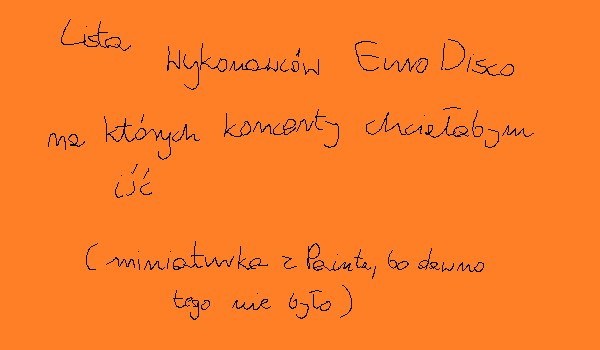 Lista
Wykonawców Euro Disco
na których koncerty chciełabym
iść
(miniaturka z Painta, bo dawno
tego nie było)